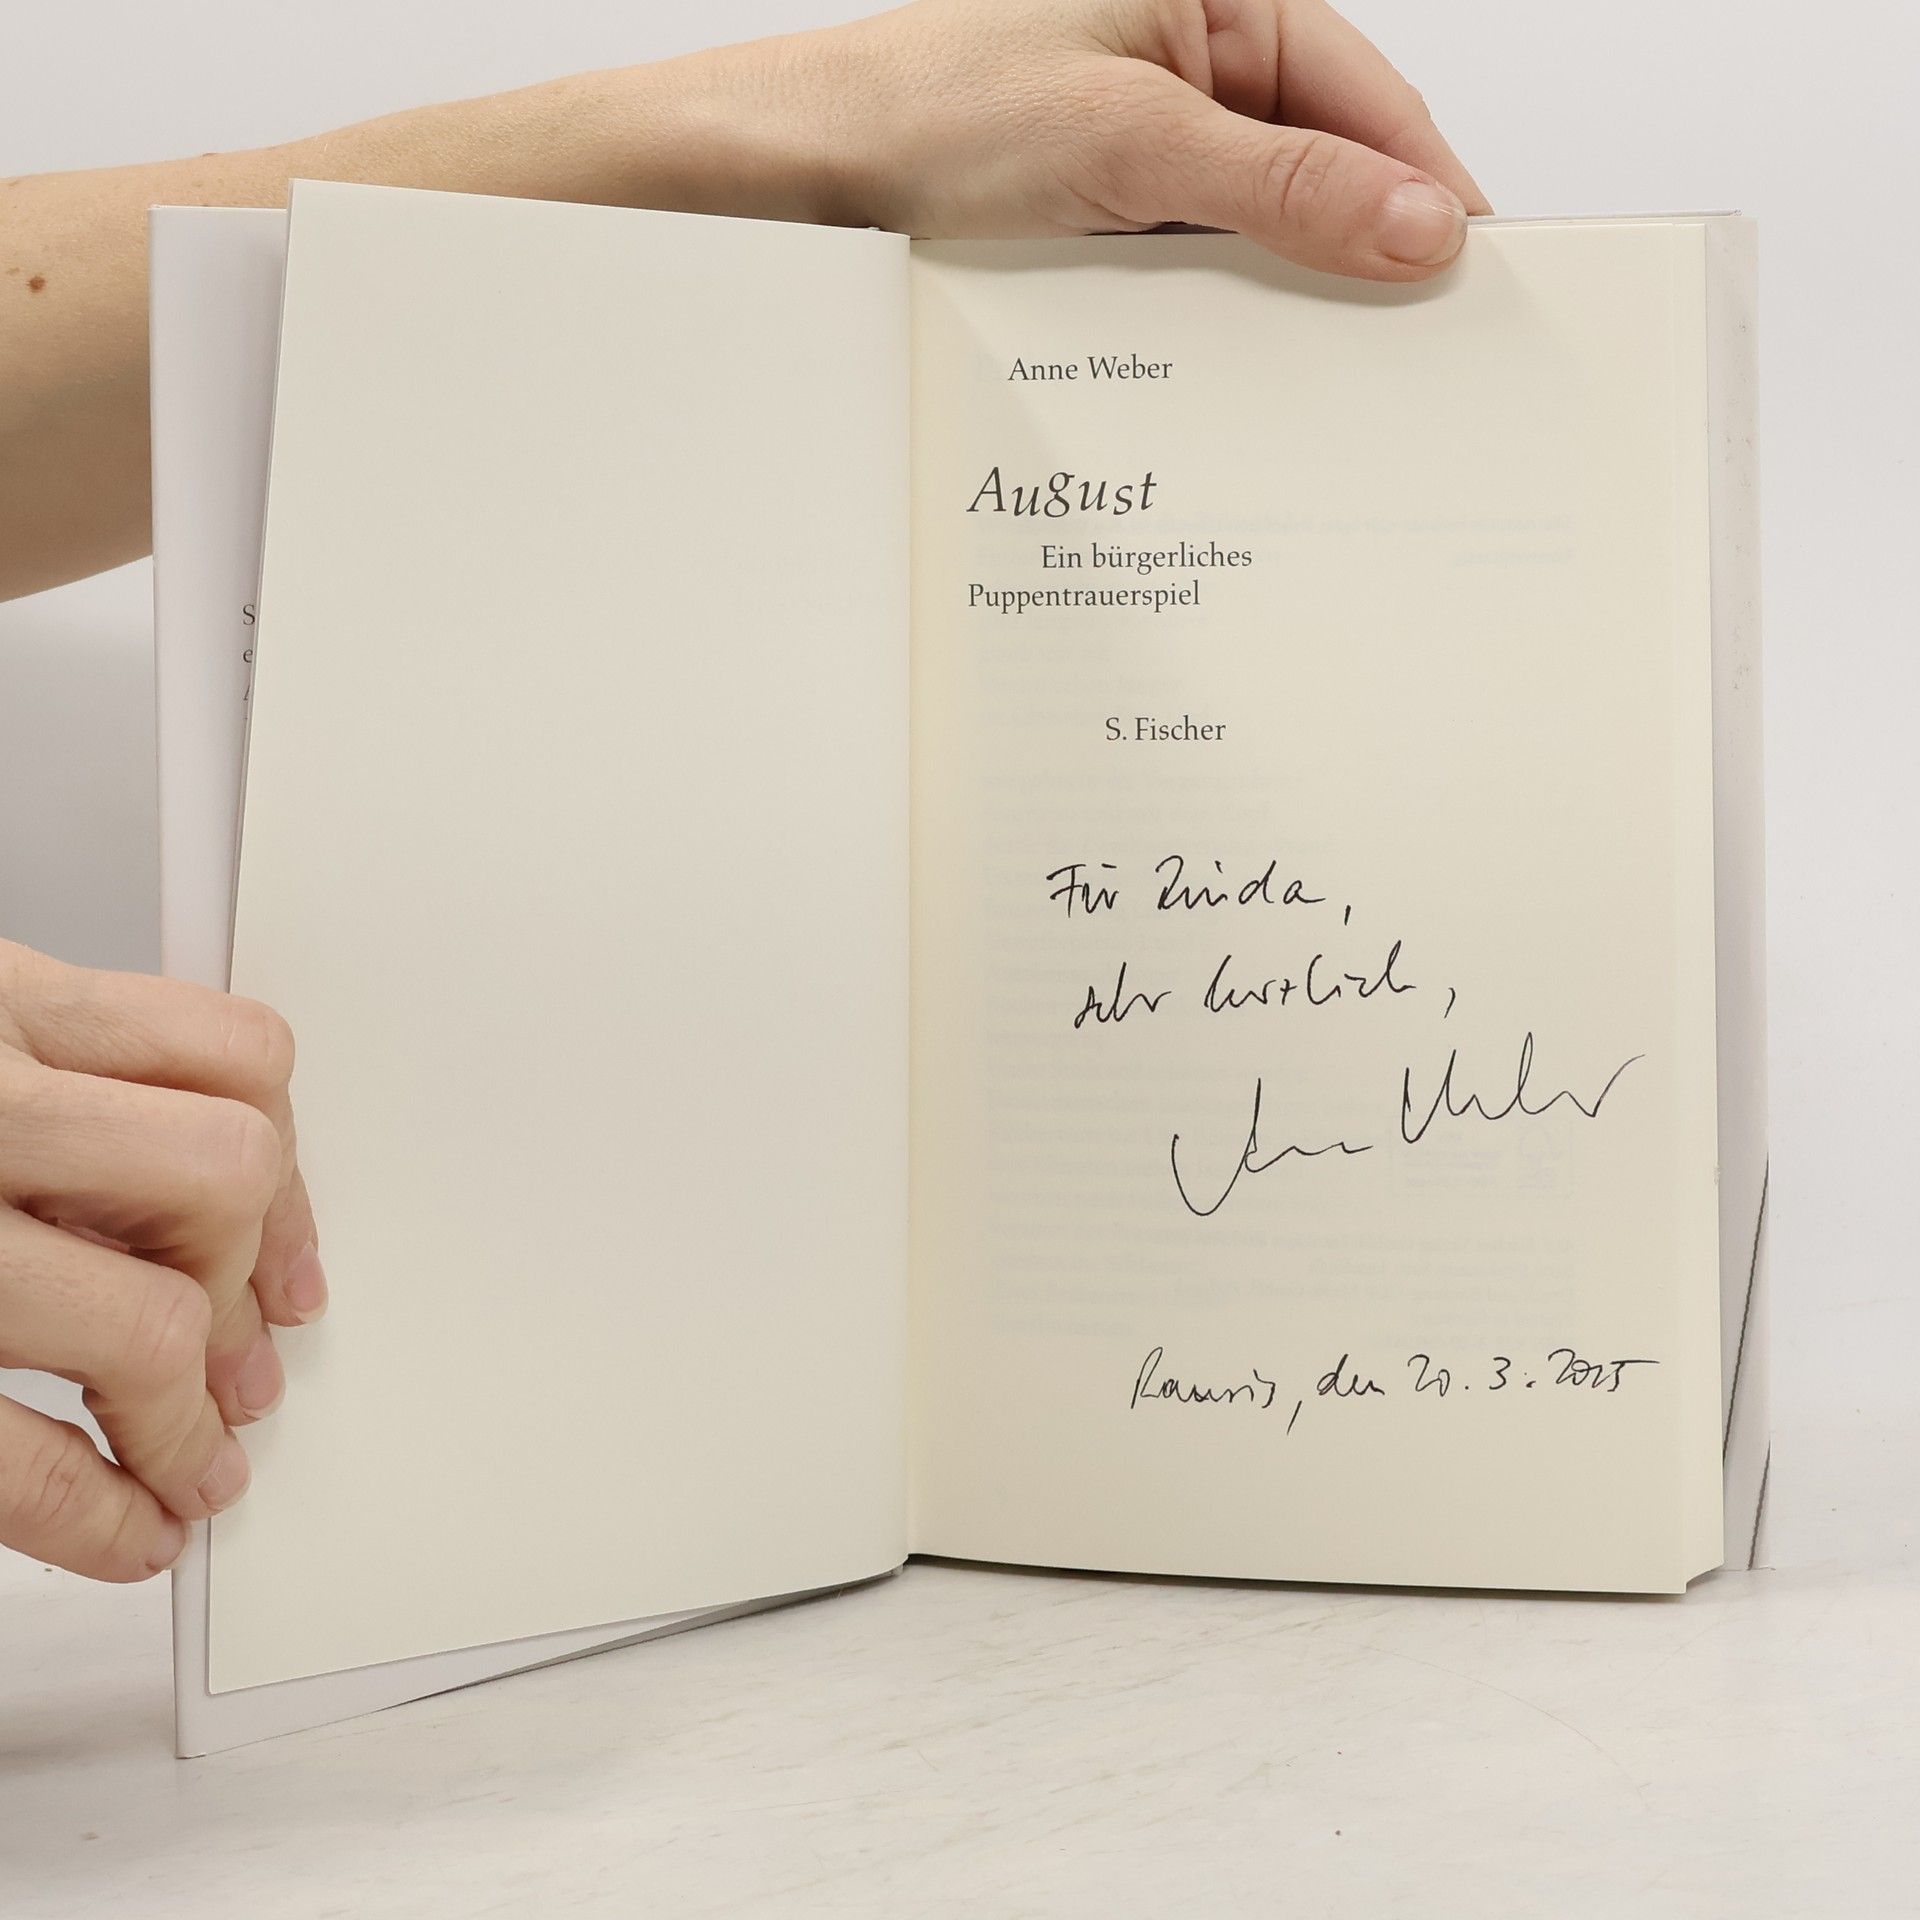 Anne Weber
August
Ein bürgerliches
Puppentrauerspiel
S. Fischer
Für
sehr herzlich,
Anne Weber
Rauris, den 20.3.2015